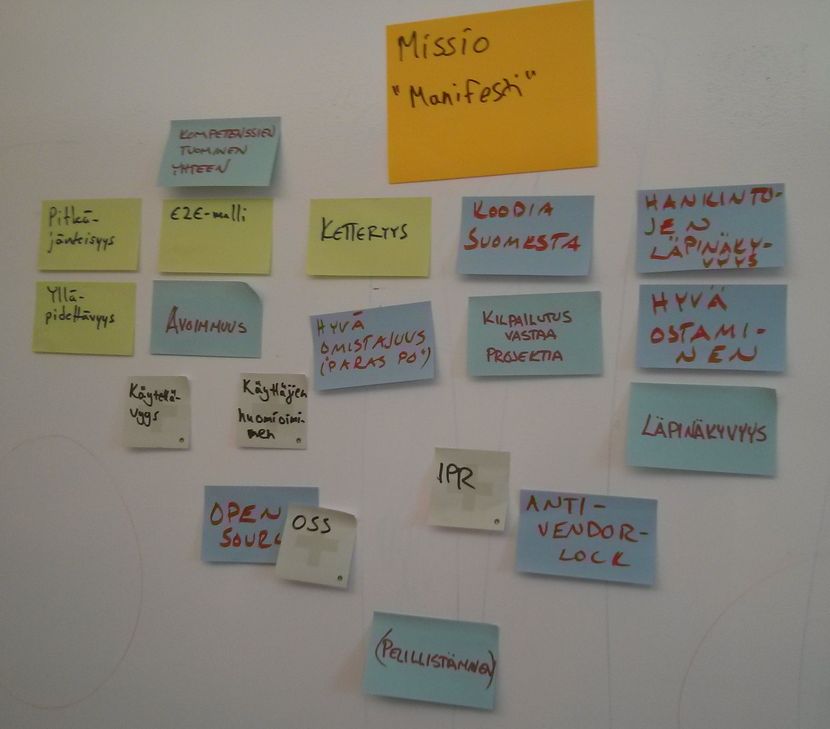 Missio
"Manifesti"
KOMPETENSSIEN
TUOMINEN
YHTEEN
Pitkä-
jänteisyys
E2E-malli
KETTERYYS
KOODIA
SUOMESTA
HANKINTO-
JEN
LÄPINÄKY-
VYYS
Yllä-
pidettävyys
AVOIMMUUS
HYVÄ
OMISTAJUUS
("PARAS PO")
KILPAILUTUS
VASTAA
PROJEKTIA
HYVÄ
OSTAMI-
NEN
Käytettä-
vyys
Käyttäjien
huomioimi-
nen
LÄPINÄKYVYYS
IPR
OPEN
SOURC
OSS
ANTI-
VENDOR-
LOCK
(PELILLISTÄMINEN)